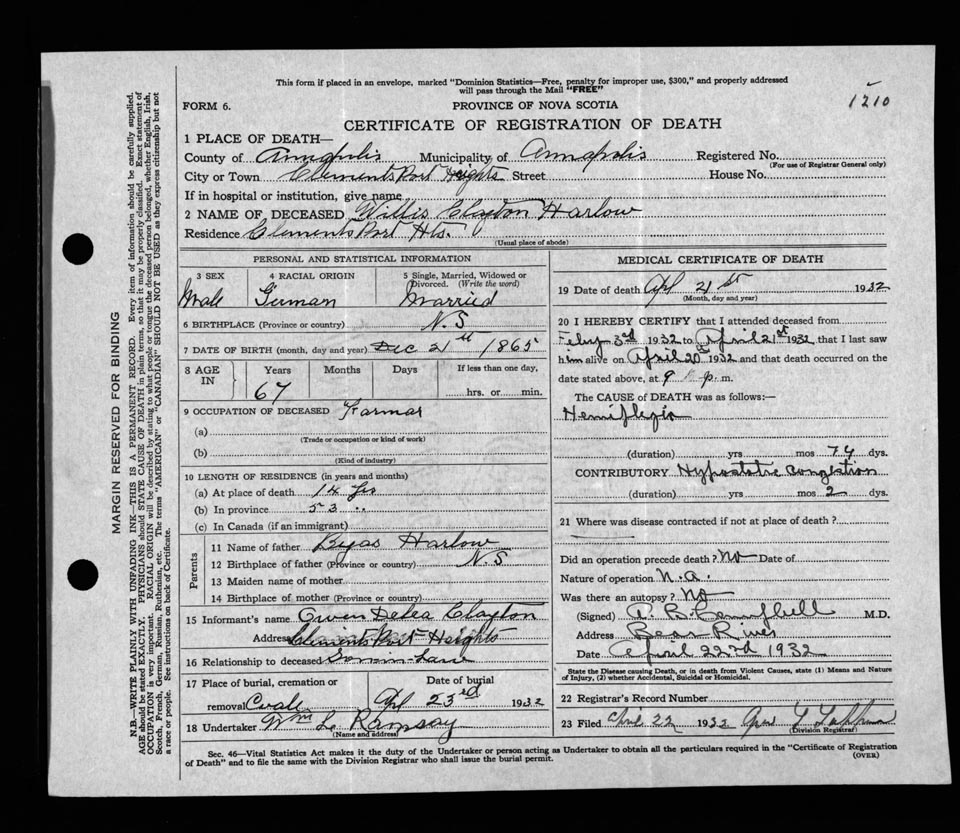 This form if placed in an envelope, marked "Dominion Statistics—Free, penalty for improper use, $300," and properly addressed
will pass through the Mail "FREE"
1210
FORM 6.
PROVINCE OF NOVA SCOTIA
CERTIFICATE OF REGISTRATION OF DEATH
1 PLACE OF DEATH—
County of Annapolis Municipality of Annapolis Registered No.
(For use of Registrar General only)
City or Town Clementsport Heights Street House No.
If in hospital or institution, give name
2 NAME OF DECEASED Willis Clayton Harlow
Residence Clementsport Hts.
(Usual place of abode)
PERSONAL AND STATISTICAL INFORMATION
3 SEX 4 RACIAL ORIGIN 5 Single, Married, Widowed or Divorced. (Write the word)
Male German Married
6 BIRTHPLACE (Province or country) N.S
7 DATE OF BIRTH (month, day and year) Dec 21st 1865
8 AGE IN Years Months Days If less than one day,
67 hrs. or min.
9 OCCUPATION OF DECEASED Farmer
(a)
(Trade or occupation or kind of work)
(b)
(Kind of industry)
10 LENGTH OF RESIDENCE (in years and months)
(a) At place of death 14 yrs
(b) In province 53 ..
(c) In Canada (if an immigrant)
Parents
11 Name of father Harlow
12 Birthplace of father (Province or country) N.S
13 Maiden name of mother
14 Birthplace of mother (Province or country)
15 Informant's name Owen Clayton
Address Clementsport Heights
16 Relationship to deceased
17 Place of burial, cremation or removal Date of burial
Apl 23rd 1932
18 Undertaker Wm L Ramsay
(Name and address)
MEDICAL CERTIFICATE OF DEATH
19 Date of death Apl 21st 1932
(Month, day and year)
20 I HEREBY CERTIFY that I attended deceased from
Feby 3rd 1932 to April 21st 1932, that I last saw
him alive on April 20th 1932 and that death occurred on the
date stated above, at 9 p. m.
The CAUSE of DEATH was as follows:—
Hemiplegia
(duration) yrs mos 74 dys.
CONTRIBUTORY Hypostatic Congestion
(duration) yrs mos 2 dys.
21 Where was disease contracted if not at place of death?
Did an operation precede death? No Date of
Nature of operation N.A.
Was there an autopsy? No
(Signed) B Campbell M.D.
Address Bear River
Date April 22nd 1932
State the Disease causing Death, or in death from Violent Causes, state (1) Means and Nature
of Injury, (2) whether Accidental, Suicidal or Homicidal.
22 Registrar's Record Number
23 Filed April 22 1932
(Division Registrar)
Sec. 46—Vital Statistics Act makes it the duty of the Undertaker or person acting as Undertaker to obtain all the particulars required in the "Certificate of Registration
of Death" and to file the same with the Division Registrar who shall issue the burial permit.
(OVER)
MARGIN RESERVED FOR BINDING
N.B.—WRITE PLAINLY WITH UNFADING INK—THIS IS A PERMANENT RECORD. Every item of information should be carefully supplied.
AGE should be stated EXACTLY. PHYSICIANS should STATE CAUSE OF DEATH in plain terms, so that it may be properly classified. Exact statement of
OCCUPATION is very important. RACIAL ORIGIN will be described by stating to what people or tongue the deceased person belonged, whether English, Irish,
Scotch, French, German, Russian, Ruthenian, etc. The terms "AMERICAN" or "CANADIAN" SHOULD NOT BE USED as they express citizenship but not
a race or people. See instructions on back of Certificate.